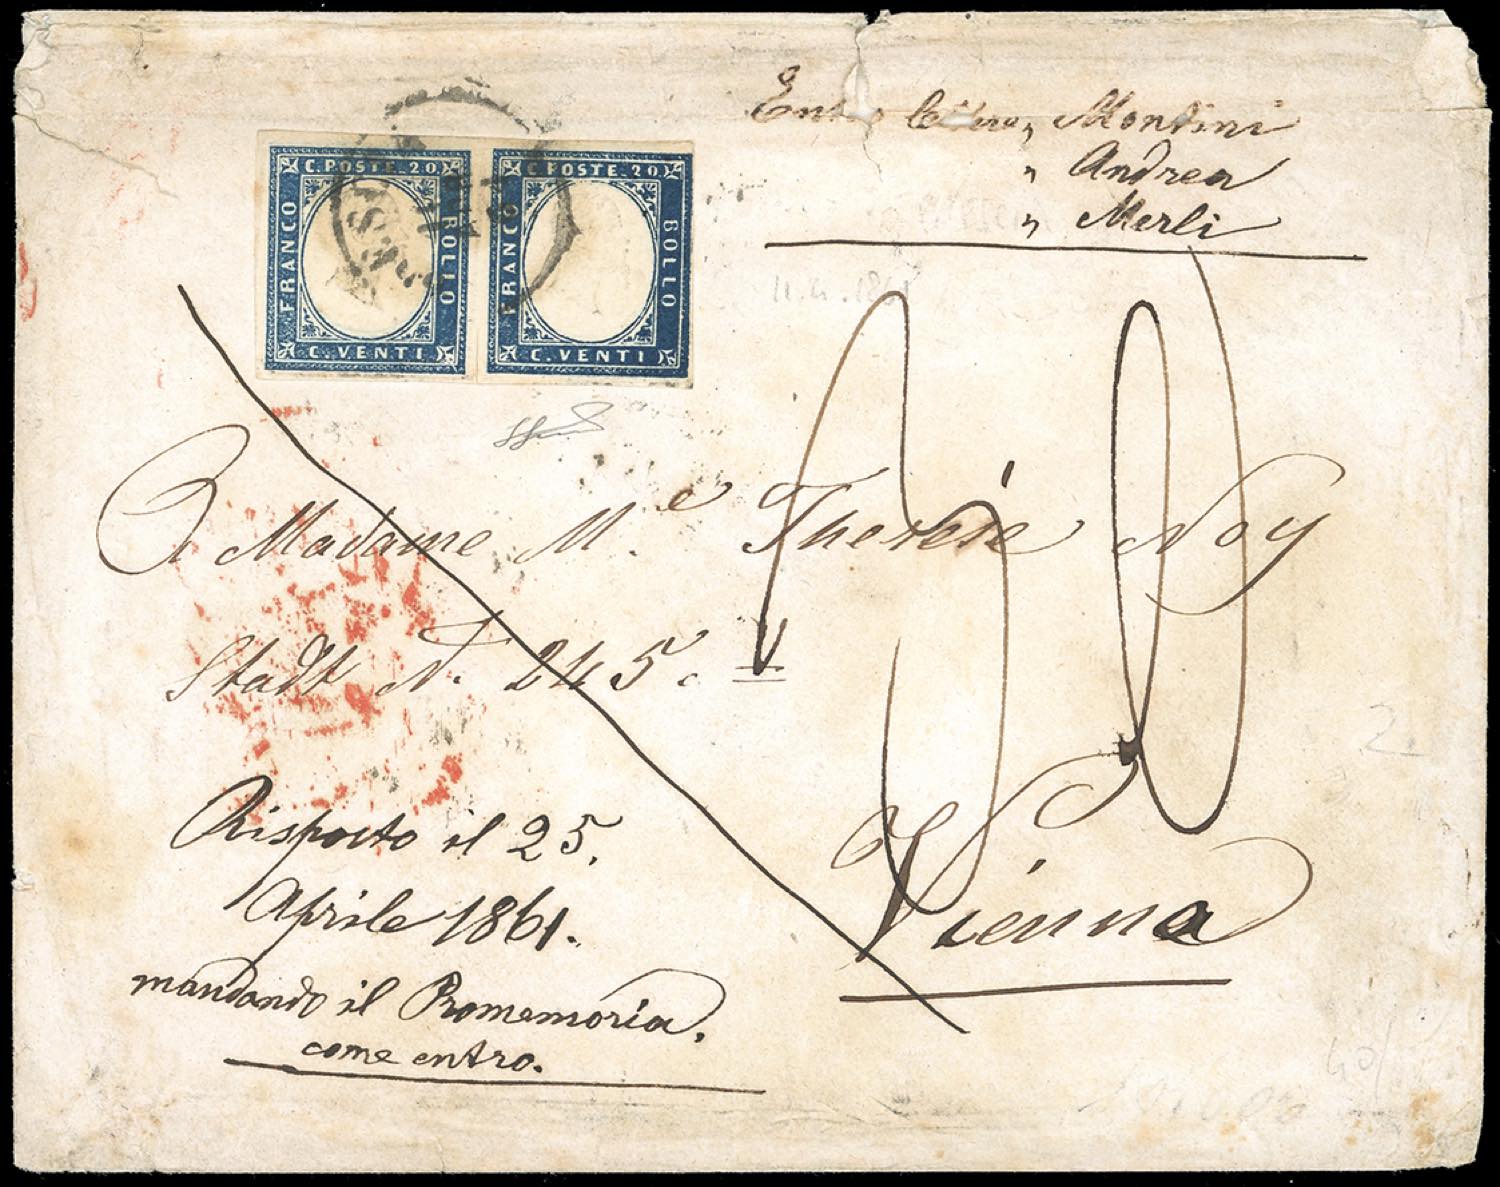 Entro lettere, Montini
" Andrea
" Merli
C. POSTE. 20.
FRANCO
BOLLO
C. VENTI
C. POSTE. 20.
FRANCO
BOLLO
C. VENTI
11.4.1861
A Madame M.e Therese Noy
Stadt N. 245.
Vienna
Risposto il 25.
Aprile 1861.
mandando il Promemoria,
come entro.
2
40/